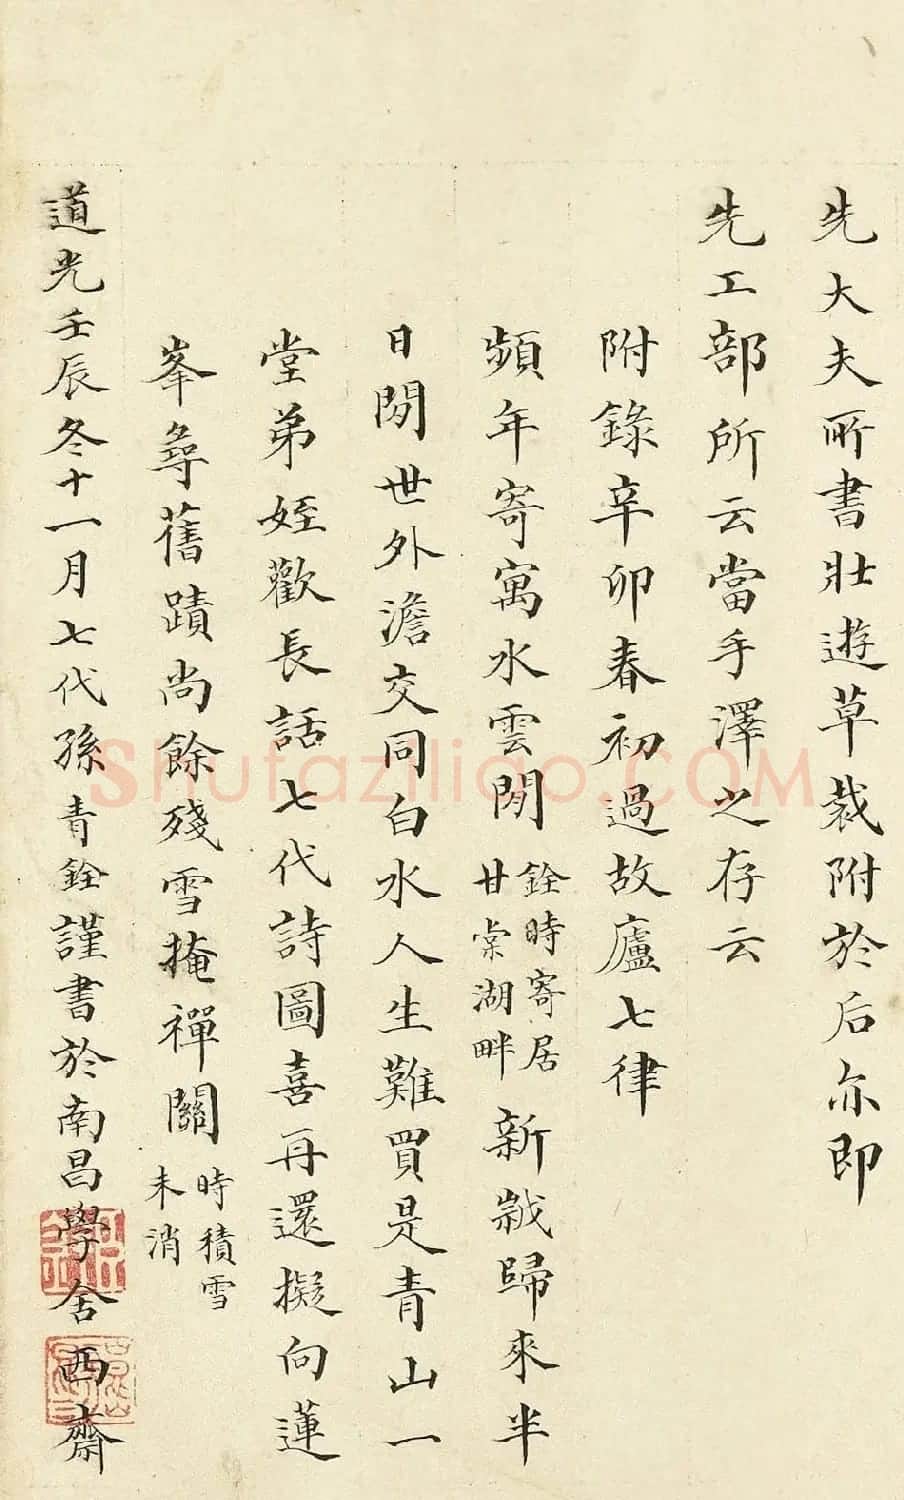 先大夫所書壯遊草裁附於后亦即
先工部所云當手澤之存云
附錄辛卯春初過故廬七律
頻年寄寓水雲閒
銓時寄居
甘棠湖畔
新嵗歸來半
日閒世外澹交同白水人生難買是青山一
堂弟姪歡長話七代詩圖喜再還擬向蓮
峯尋舊蹟尚餘殘雪掩禪關
時積雪
未消
道光壬辰冬十一月七代孫青銓謹書於南昌學舍西齋
Shufaziliao.COM